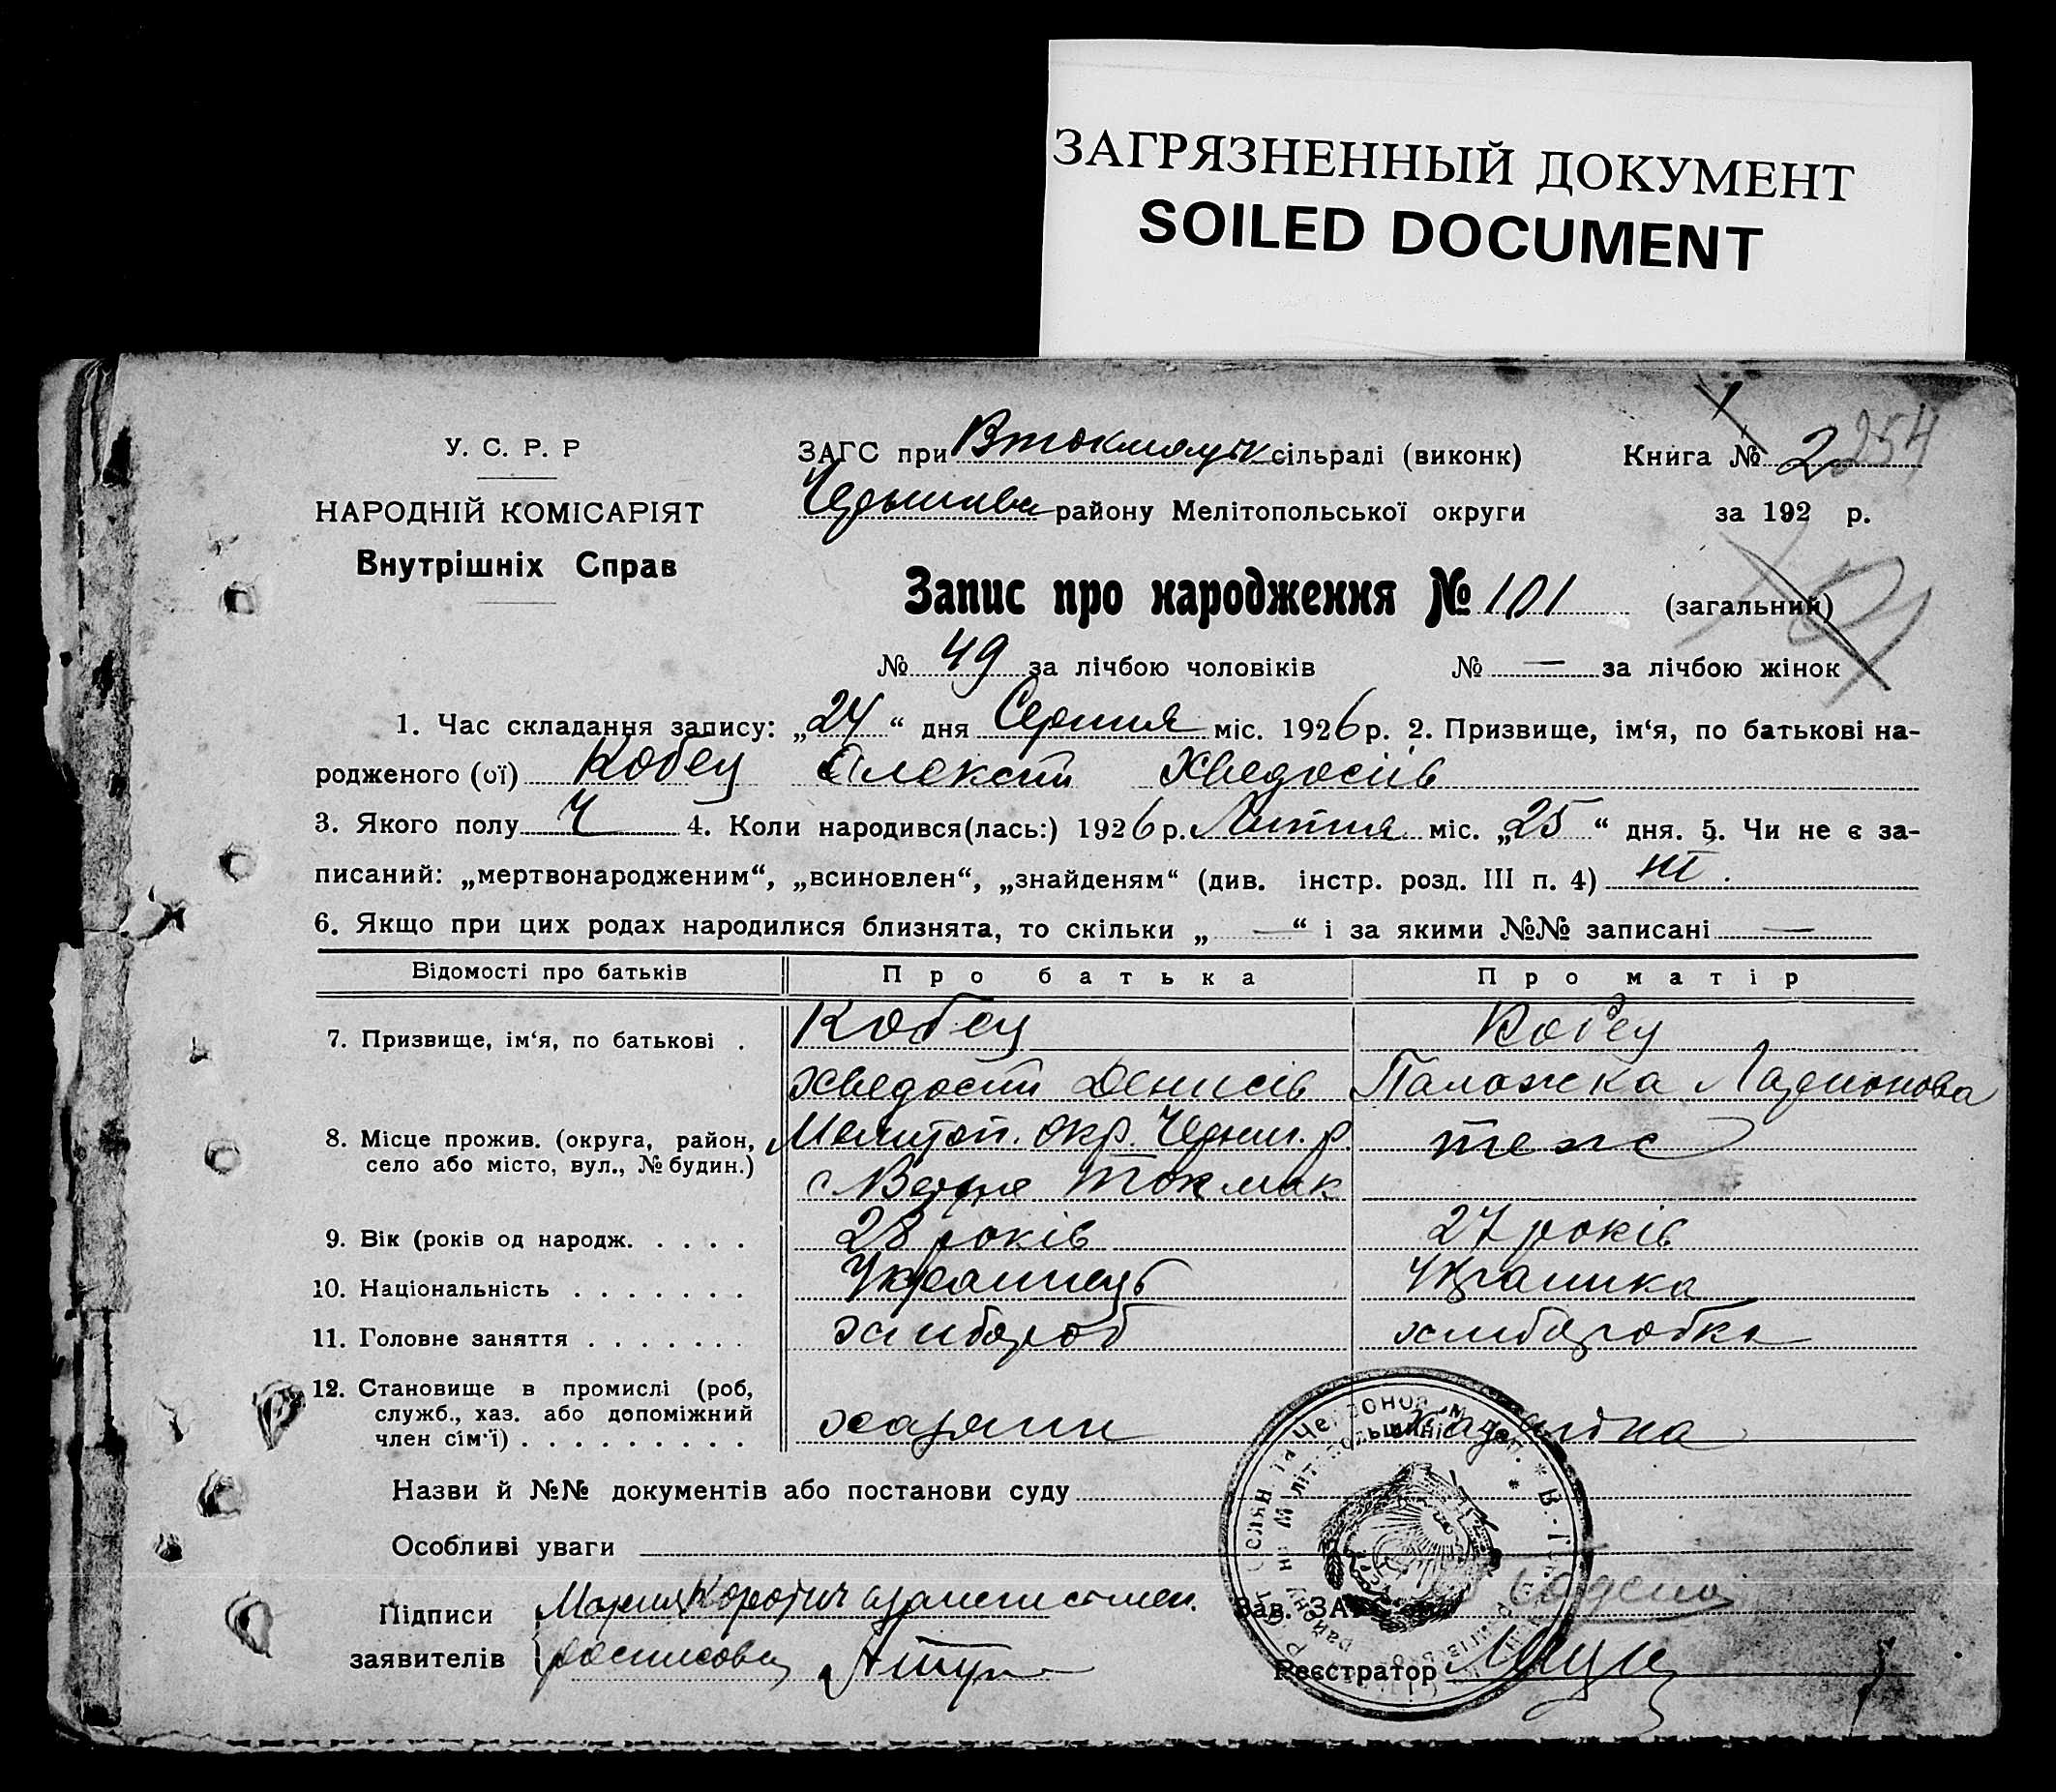 ЗАГРЯЗНЕННЫЙ ДОКУМЕНТ
SOILED DOCUMENT
У. С. Р. Р
НАРОДНІЙ КОМІСАРІЯТ
Внутрішніх Справ
ЗАГС при Втокмацьк сільраді (виконк)
районy Мелітопольської округи
Книга № 2 254
за 192 р.
Запис про народження № 101 (загальний)
№ 49 за лічбою чоловіків № — за лічбою жінок
1. Час складання запису: „24“ дня Серпня міс. 1926 р. 2. Призвище, ім‘я, по батькові на-
родженого (ої) Кобец Олексій Хведосіїв
3. Якого полу Ч 4. Коли народився(лась:) 1926 р. Липня міс. „25“ дня. 5. Чи не є за-
писаний: „мертвонародженим“, „всиновлен“, „знайденям“ (див. інстр. розд. III п. 4) ні.
6. Якщо при цих родах народилися близнята, то скільки „ — “ і за якими №№ записані —
Відомості про батьків Про батька Про матір
7. Призвище, ім‘я, по батькові . Кобец Кобец
Хведосій Денисів Палажка Ларионова
8. Місце прожив. (округа, район, село або місто, вул., № будин.) Мелітоп. окр. Черниг. р. теж
с Верхне Токмак
9. Вік (років од народж. . . . . 28 років 27 років
10. Національність . . . . . . . Українець Українка
11. Головне заняття . . . . . . . хлибороб хлиборобка
12. Становище в промислі (роб, служб., хаз. або допоміжний член сім‘ї) . . . . . . . . . хазяин хазяйка
Назви й №№ документів або постанови суду
Особливі уваги
Підписи
заявителів
Зав. ЗАГС
Реєстратор